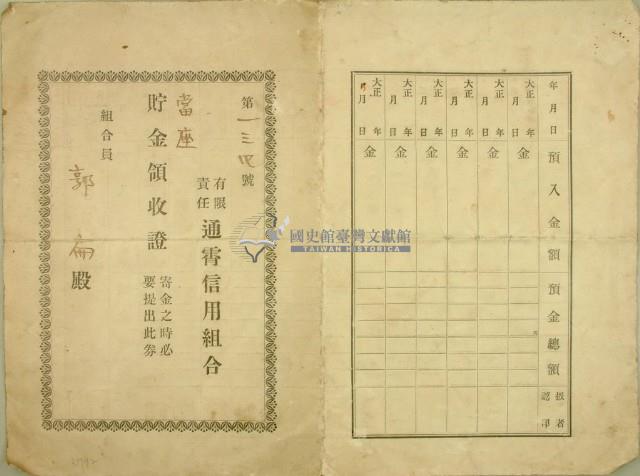 年月日
預入金額
預金總額
扱者認印
大正 年 月 日
金
大正 年 月 日
金
大正 年 月 日
金
大正 年 月 日
金
大正 年 月 日
金
大正 年 月 日
金
第一三四號
有限責任 通霄信用組合
當座
貯金領收證
寄金之時必要提出此券
組合員
郭 殿
國史館臺灣文獻館
TAIWAN HISTORICA